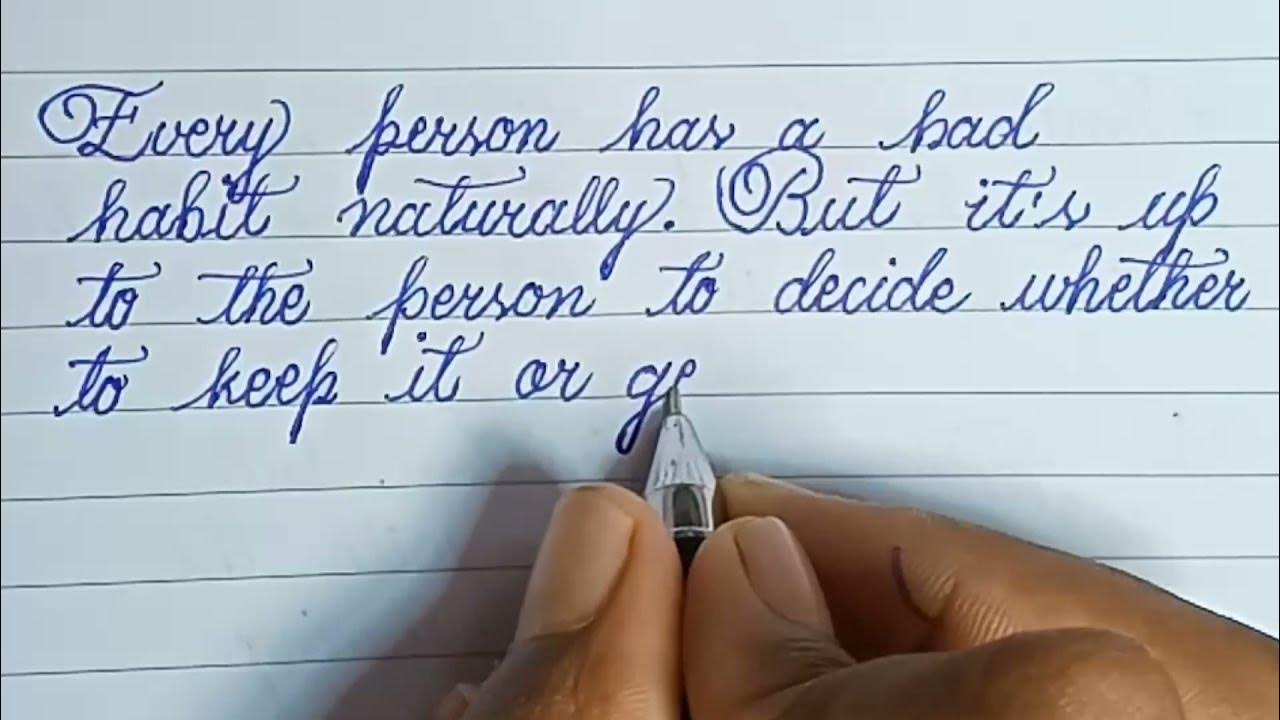 Every person has a bad
habit naturally. But it's up
to the person to decide whether
to keep it or ge